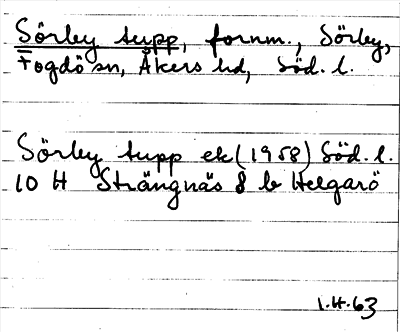 Sörby tupp, fornm., Sörby,
Fogdö sn, Åkers hd, Söd. l.
Sörby tupp ek (1958) Söd. l.
10 H Strängnäs 8 b Helgarö
1.4.63